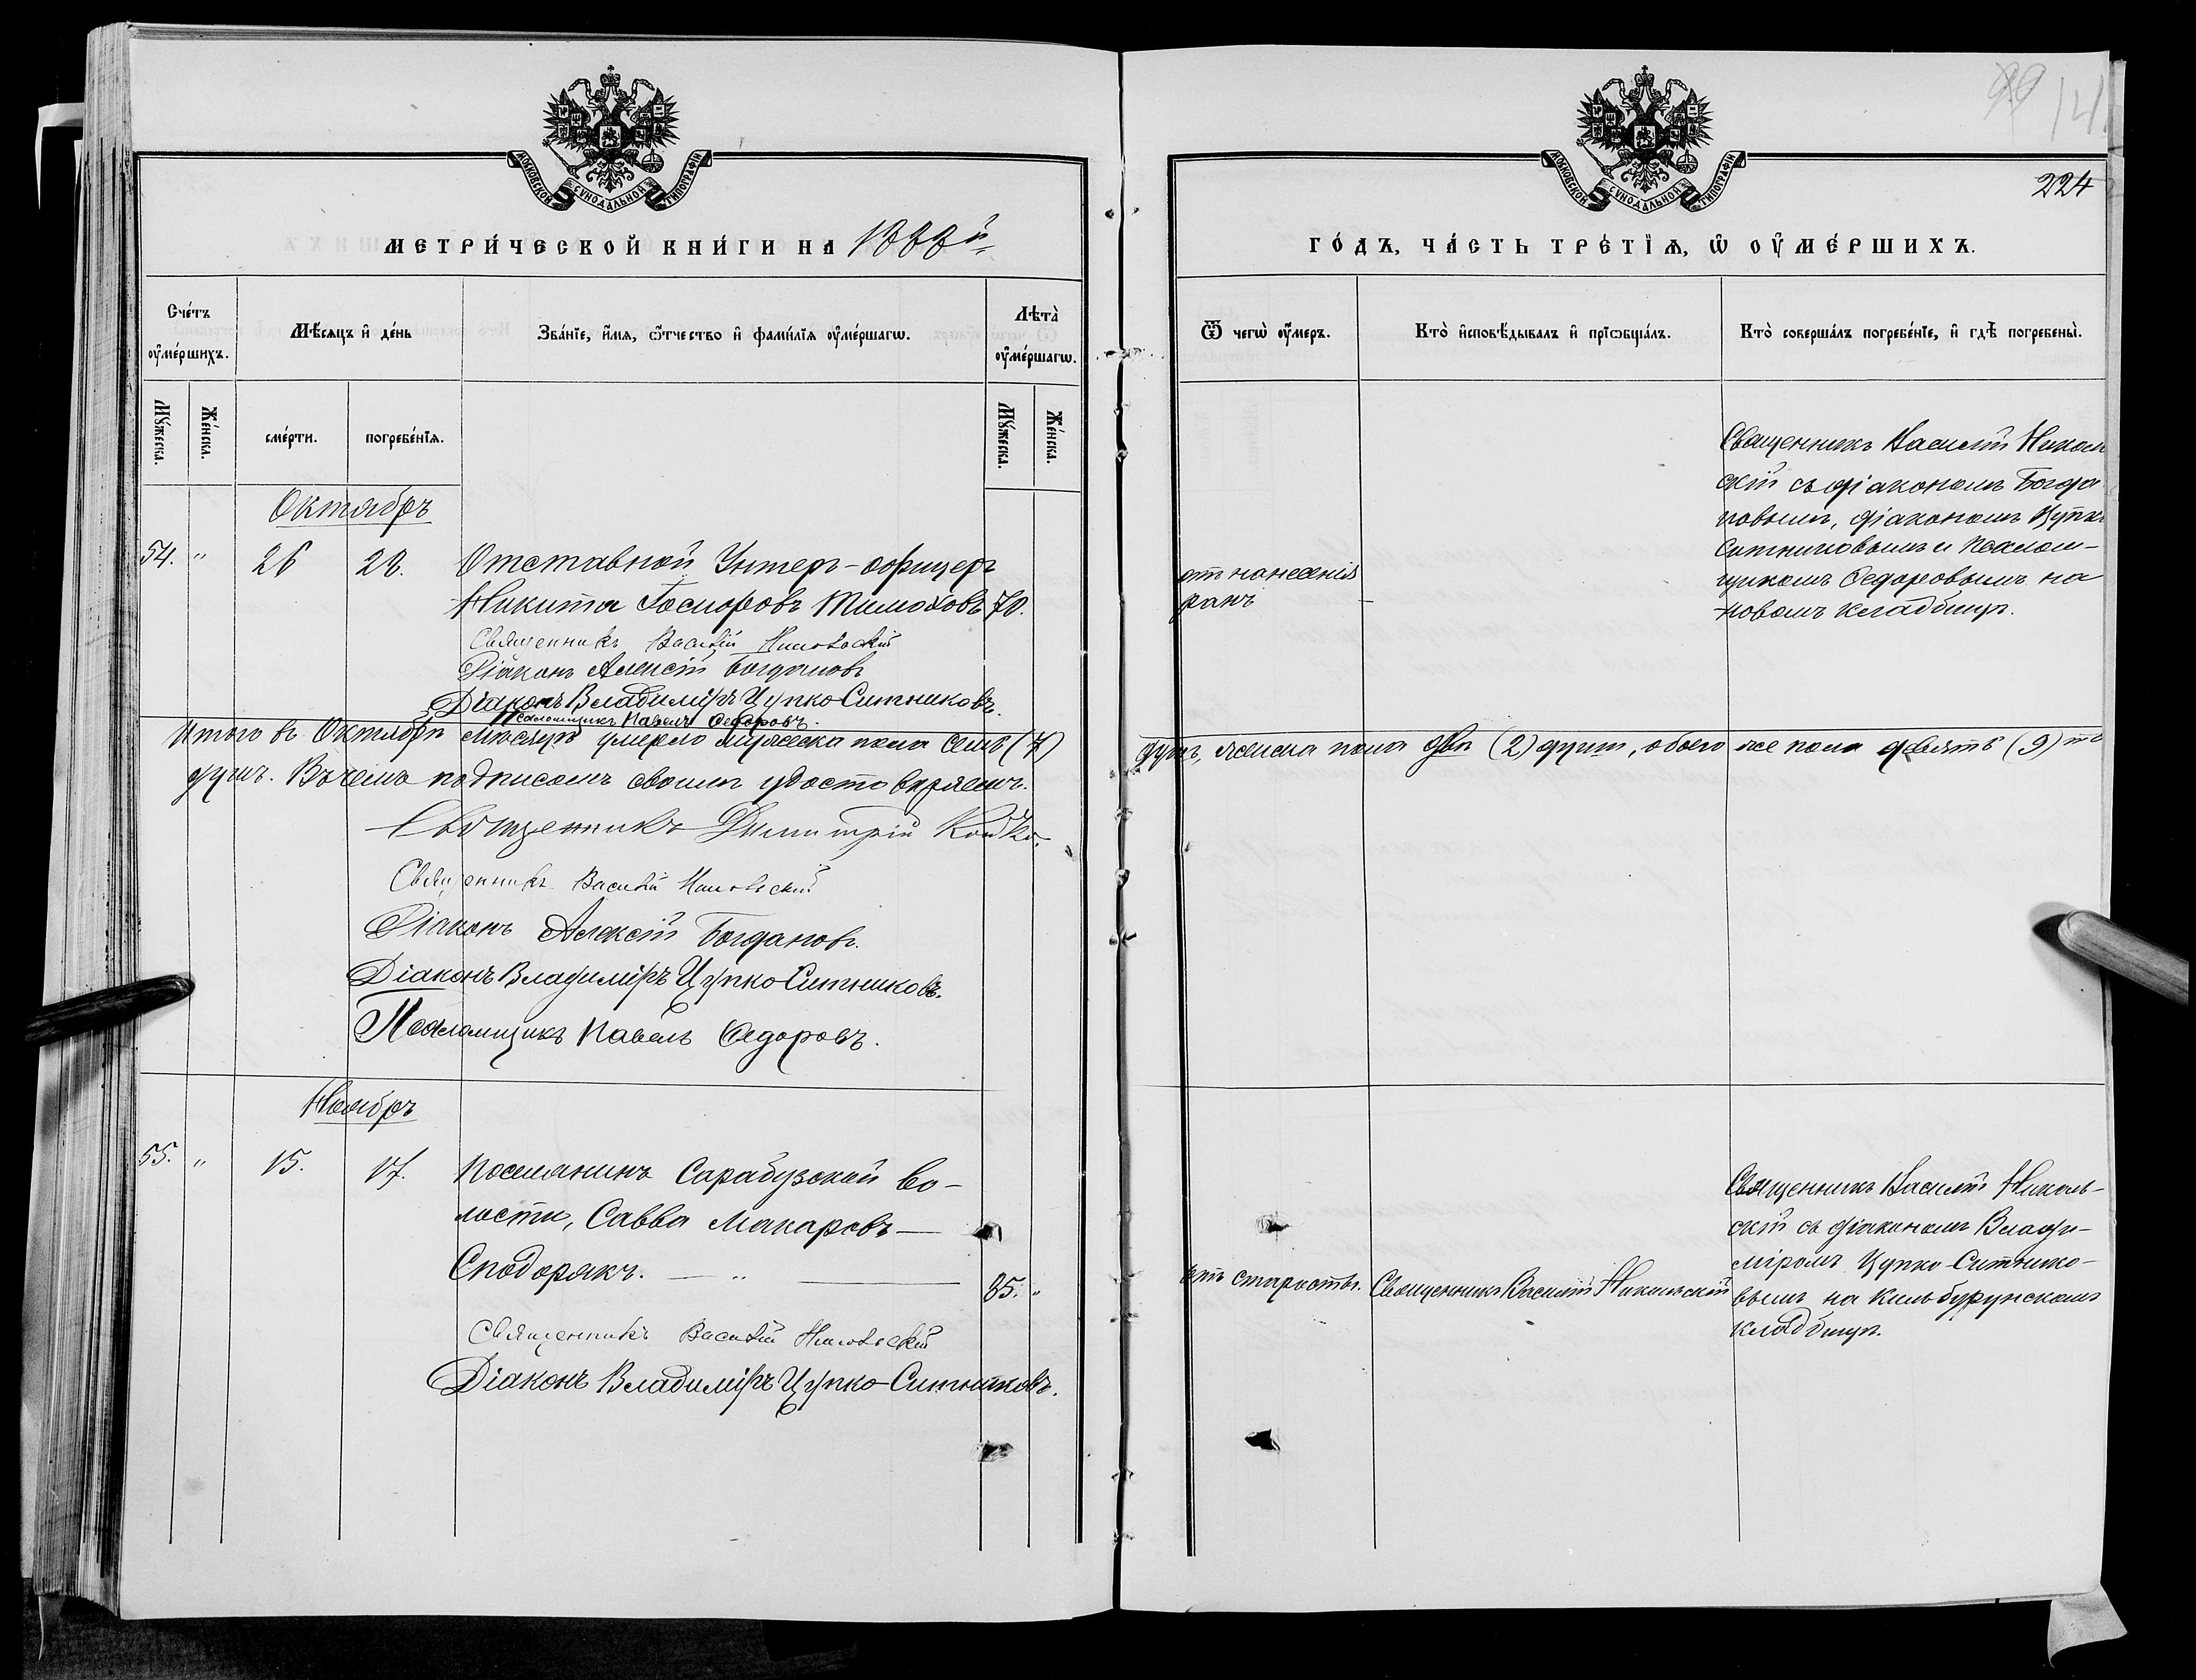 МОСКОВСКОЙ СѴНОДАЛЬНОЙ ТИПОГРАФІИ
МЕТРИ́ЧЕСКОЙ КНИ́ГИ НА 1888й
Сче́тъ ᲂу҆ме́ршихъ.
Мѣ́сяцъ и҆ де́нь
Зва́нїе, и҆́мя, ѻ҆́тчество и҆ фами́лїя ᲂу҆ме́ршагѡ.
Лѣта̀ ᲂу҆ме́ршагѡ.
Мꙋ́жеска.
Же́нска.
сме́рти.
погребе́нїя.
Мꙋ́жеска.
Же́нска.
Октябрь
54. " 26 28. Отставной Унтер-офицеръ
Никита Тимоховъ 70.
Священникъ Василій Никольскій
Діаконъ Алексій Богдановъ
Діаконъ Владиміръ Цупко-Ситниковъ.
Псаломщикъ Павелъ Ѳедоровъ.
Итого въ Октябрѣ мѣсяцѣ умерло мужеска пола семь (7)
душъ. Въ чемъ подписомъ своимъ удостовѣряемъ.
Священникъ Димитрій Койко.
Священникъ Василій Никольскій
Діаконъ Алексій Богдановъ.
Діаконъ Владиміръ Цупко-Ситниковъ.
Псаломщикъ Павелъ Ѳедоровъ.
Ноябрь
55. " 15. 17. Поселянинъ Сарабузской во-
лости, Савва Макаровъ —
Сподорякъ. — " — 85. "
Священникъ Василій Никольскій
Діаконъ Владиміръ Цупко-Ситниковъ.
224
МОСКОВСКОЙ СѴНОДАЛЬНОЙ ТИПОГРАФІИ
ГО́ДЪ, ЧА́СТЬ ТРЕ́ТЇѦ, Ѡ҆ ОУ҆МЕ́РШИХЪ.
Ѿ чегѡ̀ ᲂу҆́меръ.
Кто̀ и҆сповѣ́дывалъ и҆ прїѡбща́лъ.
Кто̀ соверша́лъ погребе́нїе, и҆ гдѣ̀ погребены̀.
Священникъ Василій Николь
скій съ діакономъ Богда
новымъ, діакономъ Цупко
Ситниковымъ и псалом-
щикомъ Ѳедоровымъ на
новомъ кладбищѣ.
отъ нанесенія
ранъ —
душъ, женска пола двѣ (2) души, обоего же пола девять (9) то
отъ старости. Священникъ Василій Никольскій
Священникъ Василій Николь-
скій съ діакономъ Влади-
міромъ Цупко-Ситнико-
вымъ на Кильбурунскомъ
кладбищѣ.